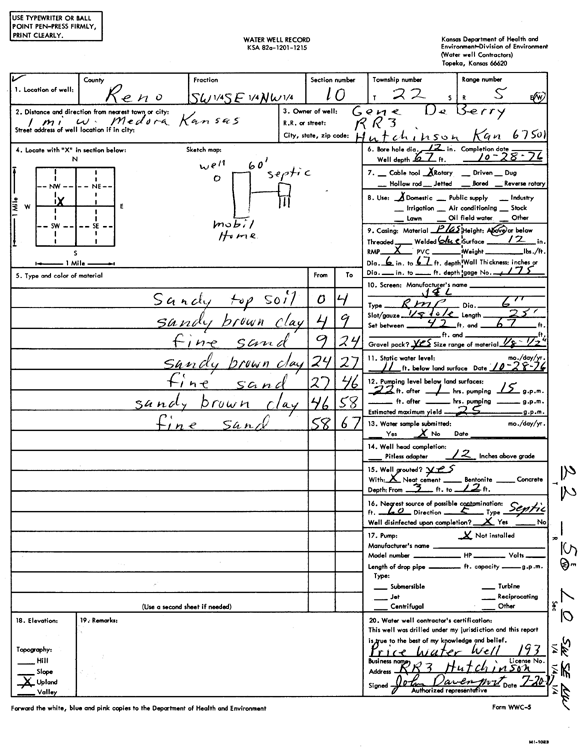 USE TYPEWRITER OR BALL
POINT PEN-PRESS FIRMLY,
PRINT CLEARLY.
WATER WELL RECORD
KSA 82a-1201-1215
Kansas Department of Health and
Environment-Division of Environment
(Water well Contractors)
Topeka, Kansas 66620
1. Location of well:
County
Reno
Fraction
SW 1/4 SE 1/4 NW 1/4
Section number
10
Township number
T 22 S
Range number
R 5 E/W
2. Distance and direction from nearest town or city:
1 mi w. Medora Kansas
Street address of well location if in city:
3. Owner of well: Gene DeBerry
R.R. or street: RR3
City, state, zip code: Hutchinson Kan 67501
4. Locate with "X" in section below:
N
NW NE
W X E
SW SE
S
1 Mile
1 Mile
Sketch map:
well 60' septic
O
mobil
Home
5. Type and color of material From To
Sandy top soil 0 4
sandy brown clay 4 9
fine sand 9 24
sandy brown clay 24 27
fine sand 27 46
sandy brown clay 46 58
fine sand 58 67
(Use a second sheet if needed)
6. Bore hole dia. 12 in. Completion date
Well depth 67 ft. 10-28-76
7. Cable tool X Rotary Driven Dug
Hollow rod Jetted Bored Reverse rotary
8. Use: X Domestic Public supply Industry
Irrigation Air conditioning Stock
Lawn Oil field water Other
9. Casing: Material Plas Height: Above or below
Threaded Welded Glue Surface 12 in.
RMP X PVC Weight lbs./ft.
Dia. 6 in. to 67 ft. depth Wall Thickness: inches or
Dia. in. to ft. depth gage No. .175
10. Screen: Manufacturer's name
Type RMP Dia. 6"
Slot/gauze Length 25'
Set between 42 ft. and 67 ft.
ft. and ft.
Gravel pack? yes Size range of material 1/8-1/2"
11. Static water level: mo./day/yr.
11 ft. below land surface Date 10-28-76
12. Pumping level below land surfaces:
22 ft. after 1 hrs. pumping 15 g.p.m.
ft. after hrs. pumping g.p.m.
Estimated maximum yield 25 g.p.m.
13. Water sample submitted: mo./day/yr.
Yes X No Date
14. Well head completion:
Pitless adapter 12 Inches above grade
15. Well grouted? yes
With: X Neat cement Bentonite Concrete
Depth: From 3 ft. to 12 ft.
16. Nearest source of possible contamination:
ft. 60 Direction E Type Septic
Well disinfected upon completion? X Yes No
17. Pump: X Not installed
Manufacturer's name
Model number HP Volts
Length of drop pipe ft. capacity g.p.m.
Type:
Submersible Turbine
Jet Reciprocating
Centrifugal Other
18. Elevation:
Topography:
Hill
Slope
X Upland
Valley
19. Remarks:
20. Water well contractor's certification:
This well was drilled under my jurisdiction and this report
is true to the best of my knowledge and belief.
Price Water Well 193
Business name License No.
Address RR3 Hutchinson
Signed John Davenport Date 7-20-77
Authorized representative
T 22 R 5 E W Sec 10 SW 1/4 SE 1/4 NW 1/4
Forward the white, blue and pink copies to the Department of Health and Environment
Form WWC-5